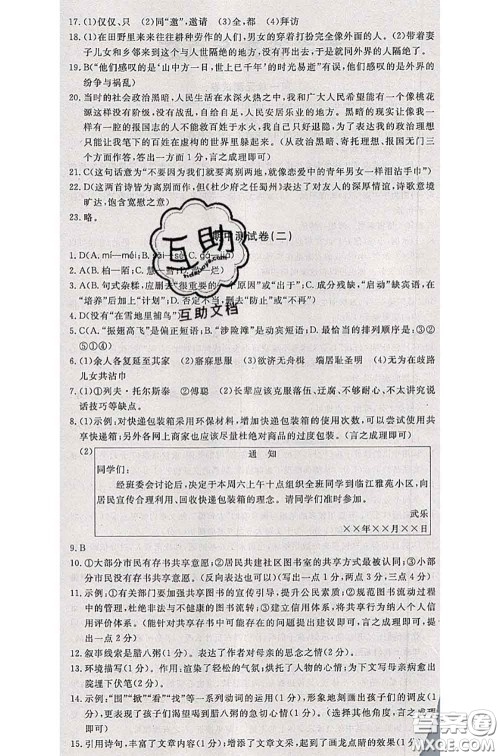 17. (1)仅仅、只　(2)同“邀”,邀请　(3)全,都　(4)拜访
18. (1)在田野里来来往往耕种劳作的人们,男女的穿着打扮完全一样。(2)带着妻
子儿女和乡邻来到这个与人世隔绝的地方,不再出去,于是就同外面的人隔绝了。
19. B(“他们感叹的是‘山中方一日,世上已千年’的时光易逝”有误,他们感叹的是外界的
纷争与祸乱)
20. 当时的社会政治黑暗,人民生活在水深火热之中,我和广大人民希望能有一个像桃花
源这样没有阶级,没有战乱,自给自足,人民安居乐业的地方。黑暗的现实,让像我
一样的有一腔报国志的人大多无用武之地,报国无门,为了表达我的政治理想
只能让我笔下的百姓在虚构的世界里躲起来。(从政治黑暗、寄托理想、报国无门三
个方面作答,答出一方面1分,言之成理即可)
21. C(这句话意为“不要因为我们就要离别两地,就像恋爱中的青年男女一样泪沾手巾”)
22. D(这两首诗皆为离别而作,但《杜少府之任蜀州》表达了对友人的深厚情谊,诗歌意境
旷达,饱含宽慰之意)
23. 略。
期中测试卷(二)
1. D(A.
2. A(B. 柏—陌;C. 慧
3. A(B. 句式杂糅,应删去“很重要的一个原因”或“于”;C. 成分残缺,“启动”缺宾语,在
“培养”后加上“计划”;D. 否定不当,删去“防止”或“不再”)
4. D(没有“在雪地里捕鸟”
5. C(A. “振翅高飞”是偏正短语;B. “涉险滩”是动宾短语;D. 最恰当的排列顺序是:③②
⑤①④)
6. (1)余人各复延至其家　(2)寤寐思服　(3)欲济无舟楫　端居耻圣明　(4)无为在歧路
儿女共沾巾
7. (1)①列夫·托尔斯泰　②傅聪　(2)长辈应该克服落伍、迂腐、不够耐心、不太讲究说
话技巧等缺点。
8. (1)示例:对快递包装箱采用环保材料,增加快递包装箱的使用次数,可以尝试使用共
享快递箱;另外各网上商家也应该减少商品的过度包装。(言之成理即可)
(2)
通　知
同学们:
经班委会讨论后,决定于本周六上午十点组织全班同学到临江雅苑小区,向
居民宣传合理利用、回收快递包装箱的理念。请大家准时参加!
武乐
××年××月××日
9. B
10. ①大部分市民有存书共享意愿;②居民共建社区图书室的共享方式最被认同;③小部
分市民无存书共享意愿。(反向表达也可)(写出一点1分,两点3分,三点4分)
11. 示例:①有关部门要加强共享图书的宣传引导,提升公民素质;②规范图书流动过程
中的管理制度;③建立借书人信用评价机制,把对待共享图书的行为纳入个人信用
评价体系。(能针对共享过程中可能存在的问题提出建议即可,言之成理即可)(写
出一点1分)
12. 叙事线索是腊八粥(1分)。表达了作者对母亲的思念之情(2分)。
13. 环境描写(1分)。作用:渲染了轻松的气氛;烘托了人物的心情;为下文写母亲病愈出
院埋下伏笔(2分)。
14. 示例:“围”“掀”“看”“找”等一系列动词的运用(1分),生动形象地写出了孩子们渴望
喝到腊八粥的急切心情(1分),刻画出了孩子们的天真可爱(1分)。
15. 引用诗句,丰富了文章内容(1分),增强了文章的表达效果,起到了画龙点睛的效果(1分)
互助
互助文档